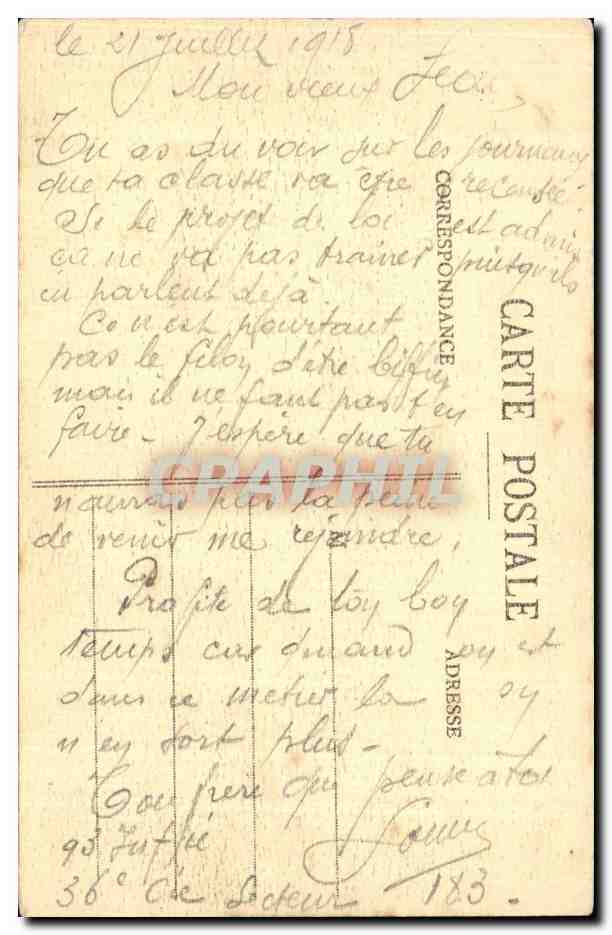 le 21 Juillet 1918
Mon vieux Jean,
Tu as du voir sur les journaux
que ta classe va être recensée.
Si le projet de loi est admis
ca ne va pas trainer puisqu'ils
en parlent déjà.
Ce n'est pourtant
pas le filon d'être biffin
mais il ne faut pas t'en
faire - J'espère que tu
n'auras pas la peine
de venir me rejoindre.
Profite de ton bon
temps car quand on est
dans ce metier la on
n'en sort plus -
Ton frère qui pense à toi
93 Inf
36e Cie Secteur 183 -
CORRESPONDANCE
CARTE POSTALE
ADRESSE
CPAPHIL